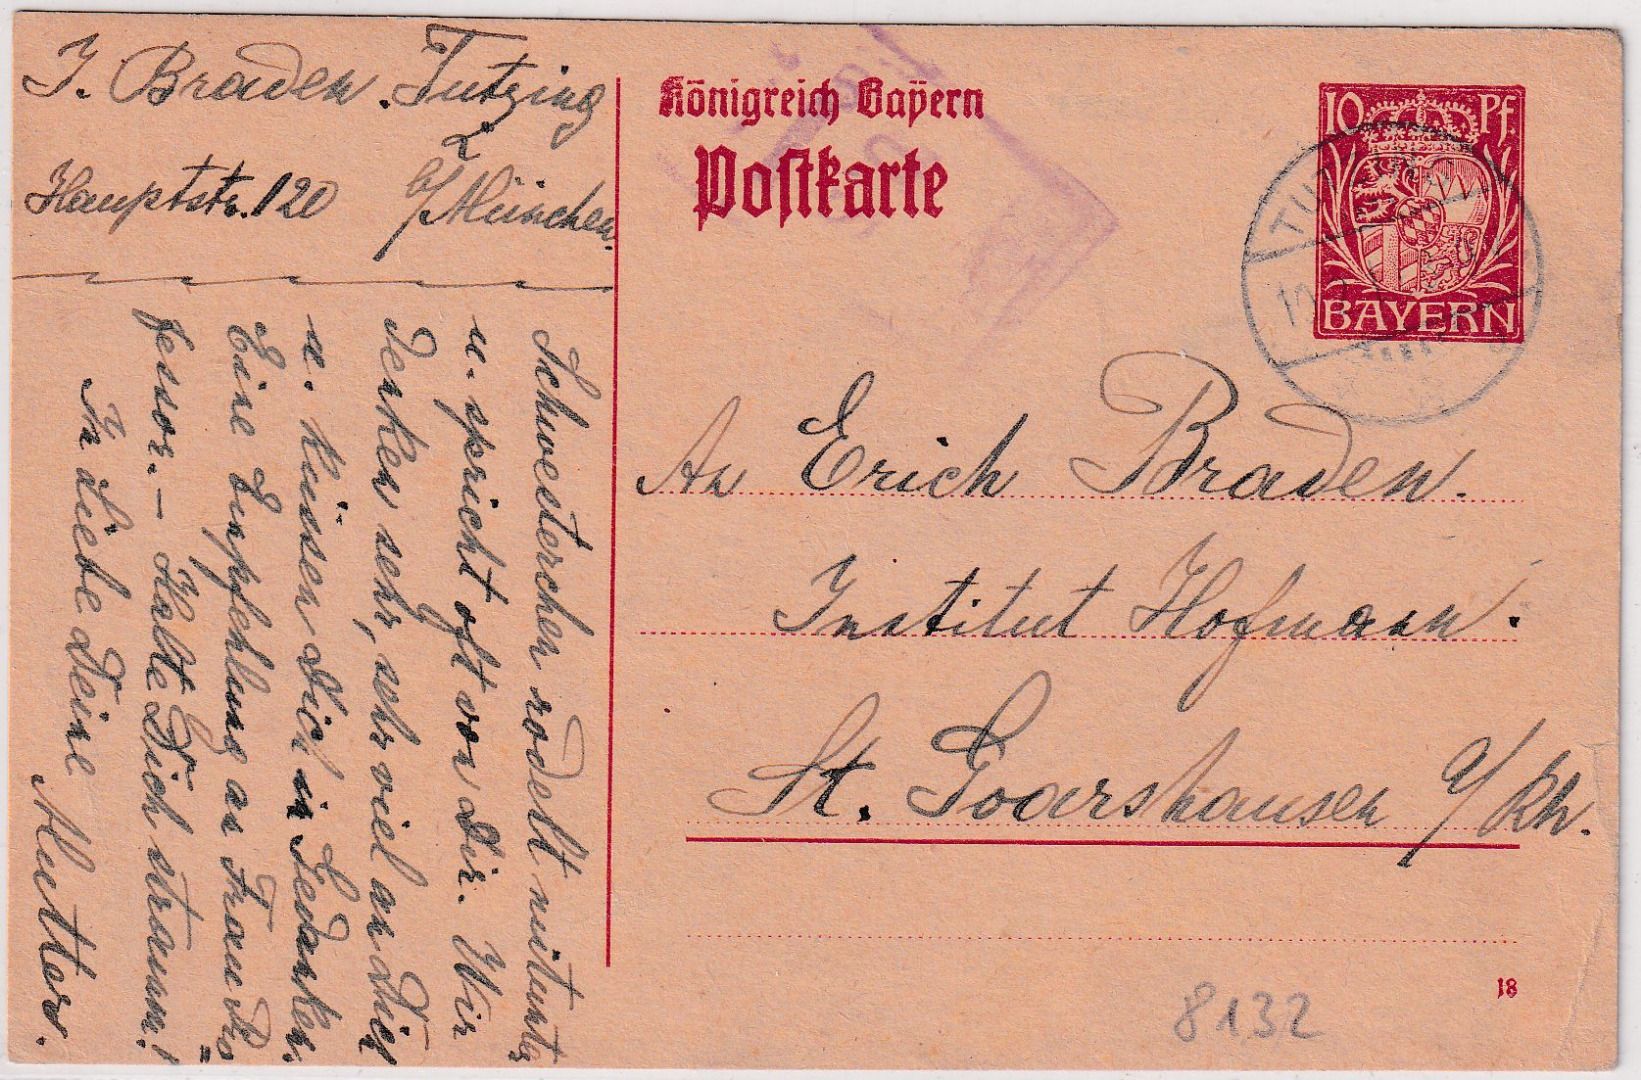 J. Braden. Tutzing
Hauptstr. 120 b/München.
Schwesterchen rodelt mitunter
u. spricht oft von Dir. Wir
denken sehr, sehr viel an Dich
u. küssen Dich in Gedanken.
Eine Empfehlung an Frau Pro=
fessor. – Halte Dich stramm!
In Liebe Deine Mutter.
Königreich Bayern
Postkarte
10 Pf.
BAYERN
An Erich Braden.
Institut Hofmann.
St. Goarshausen a/Rh.
18
8132